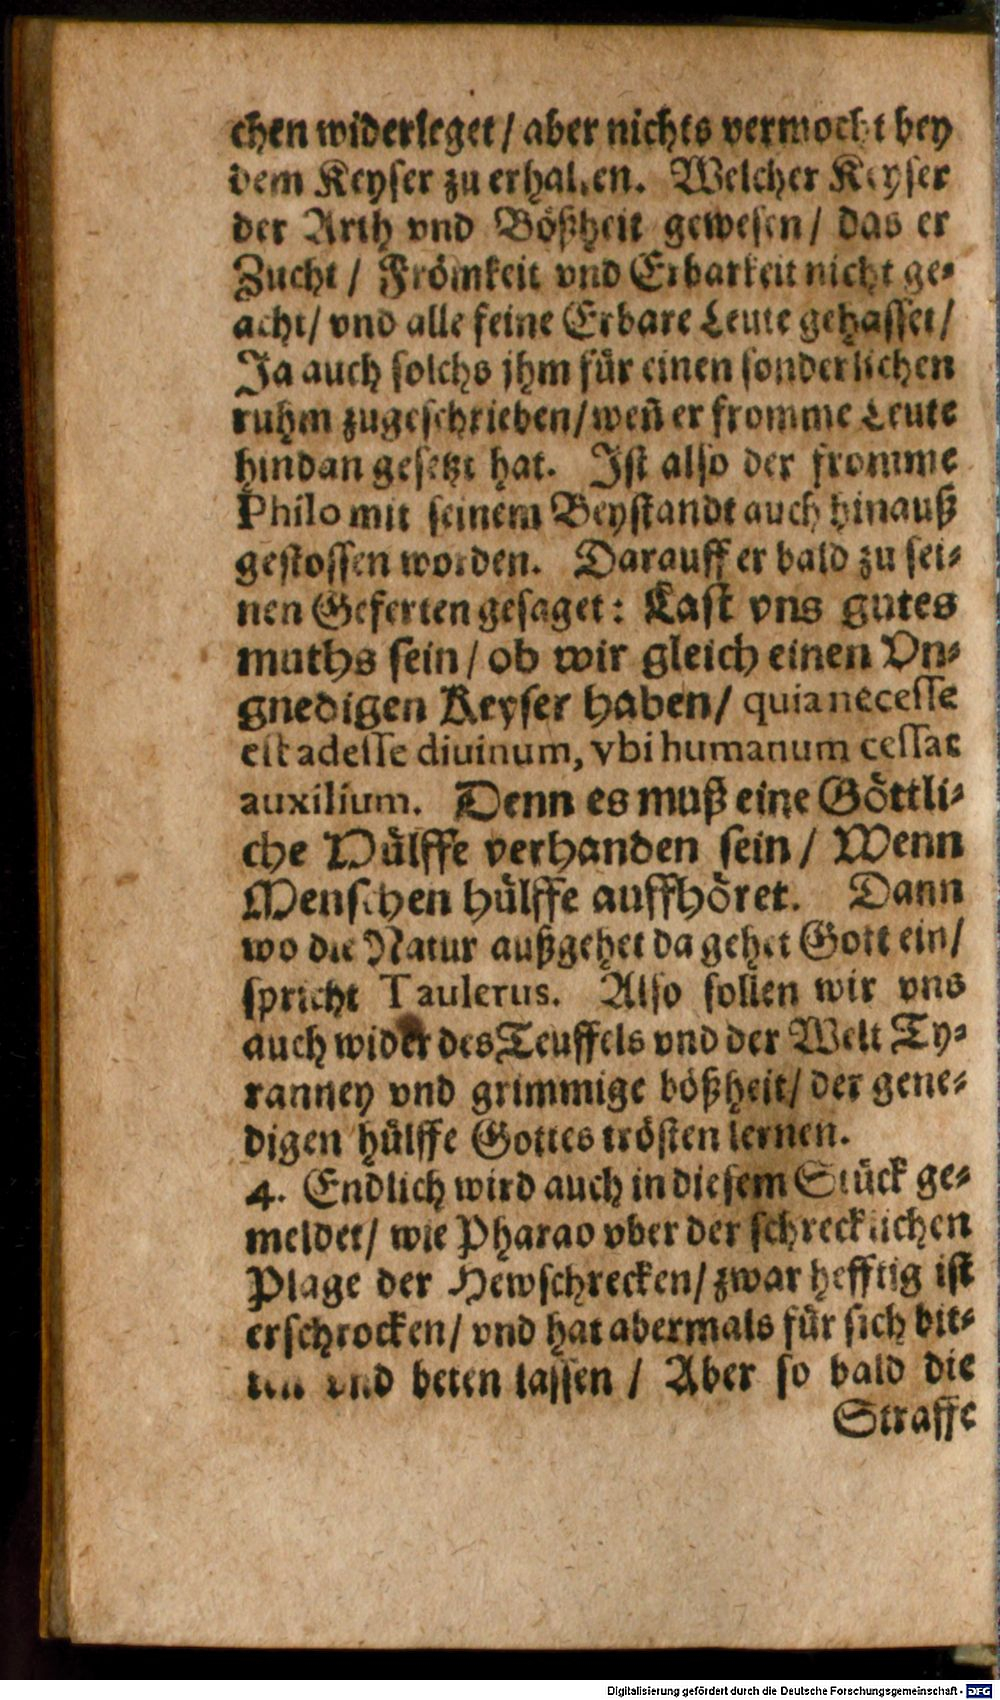 chen widerleget / aber nichts vermocht bey
dem Keyser zu erhalten. Welcher Keyser
der Arth vnd Bößheit gewesen / das er
Zucht / Frömkeit vnd Erbarkeit nicht ge-
acht / vnd alle feine Erbare Leute gehasset /
Ja auch solchs jhm für einen sonderlichen
ruhm zugeschrieben / weñ er fromme Leute
hindan gesetzt hat. Ist also der fromme
Philo mit seinem Beystandt auch hinauß
gestossen worden. Darauff er bald zu sei-
nen Geferten gesaget: Last vns gutes
muths sein / ob wir gleich einen Vn-
gnedigen Keyser haben / quia necesse
est adesse diuinum, vbi humanum cessat
auxilium. Denn es muß eine Göttli-
che Hülffe verhanden sein / Wenn
Menschen hülffe auffhöret. Dann
wo die Natur außgehet da gehet Gott ein /
spricht Taulerus. Also sollen wir vns
auch wider des Teuffels vnd der Welt Ty-
ranney vnd grimmige bößheit / der gene-
digen hülffe Gottes trösten lernen.
4. Endlich wird auch in diesem Stück ge-
meldet / wie Pharao vber der schrecklichen
Plage der Hewschrecken / zwar hefftig ist
erschrocken / vnd hat abermals für sich bit-
ten vnd beten lassen / Aber so bald die
Straffe
Digitalisierung gefördert durch die Deutsche Forschungsgemeinschaft - DFG